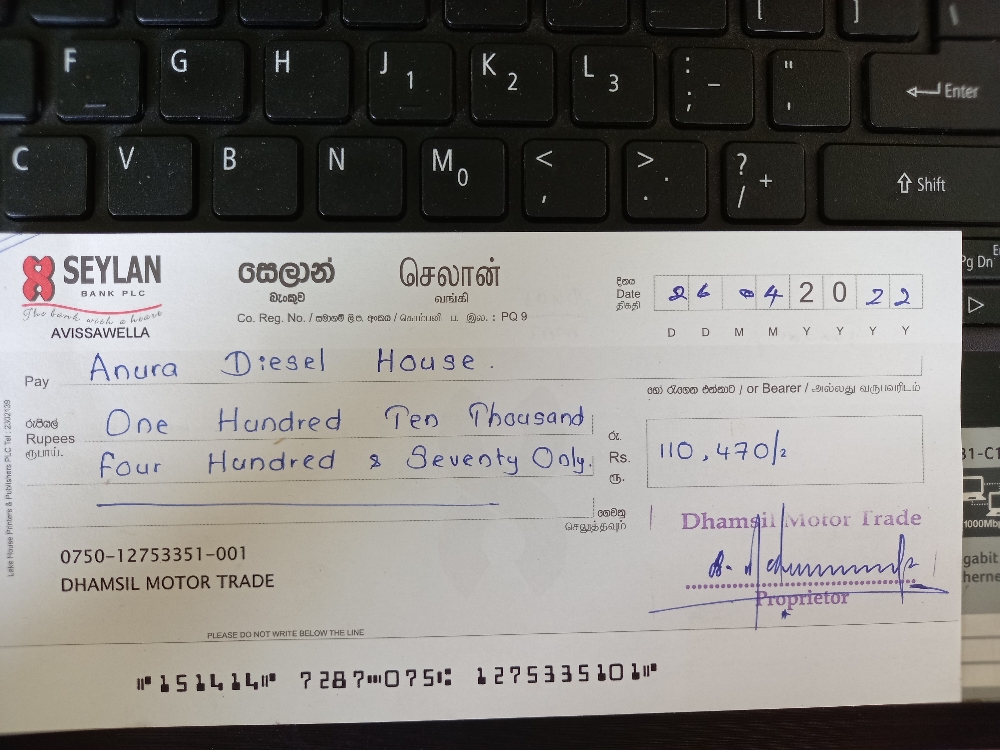 [ ]
F G H J 1 K 2 L 3 : ; _ " ' Enter
C V B N M 0 < , > . ? / + Shift
Pg Dn
SEYLAN
BANK PLC
The bank with a heart
AVISSAWELLA
සෙලාන්
බැංකුව
செலான்
வங்கி
Co. Reg. No. / සමාගම් ලි.ප. අංකය / கொம்பனி ப. இல. : PQ 9
දිනය
Date
திகதி
26 04 2022
D D M M Y Y Y Y
Pay Anura Diesel House.
හෝ රැගෙන එන්නාට / or Bearer / அல்லது வருபவரிடம்
රුපියල්
Rupees
ரூபாய்.
One Hundred Ten Thousand
Four Hundred & Seventy Only.
රු.
Rs.
ரூ.
110,470/=
ගෙවනු
செலுத்தவும்
Dhamsil Motor Trade
Proprietor
0750-12753351-001
DHAMSIL MOTOR TRADE
PLEASE DO NOT WRITE BELOW THE LINE
⑈151414⑈ 7287⑉075⑆ 1275335101⑈
Lake House Printers & Publishers PLC Tel : 2302139
1000Mbp
gabit